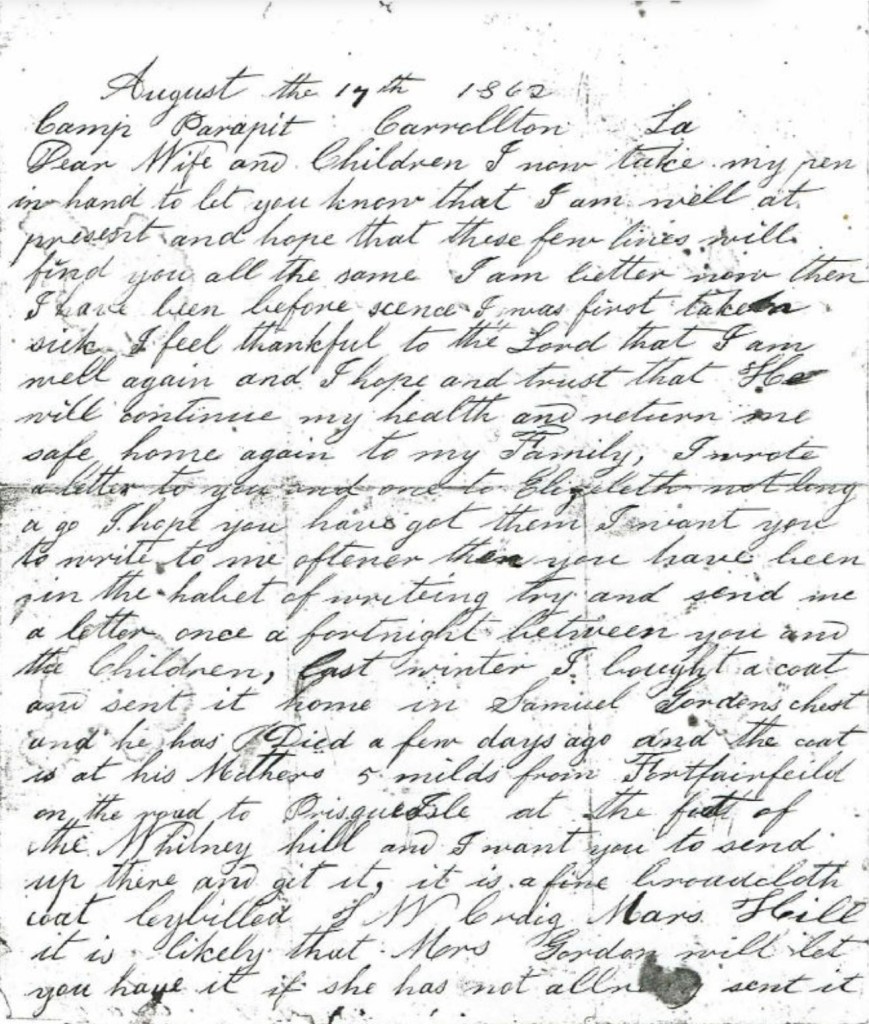 August the 17th 1862
Camp Parapit Carrollton La
Dear Wife and Children I now take my pen
in hand to let you know that I am well at
present and hope that these few lines will
find you all the same I am better now then
I have been before scence I was first taken
sick I feel thankful to the Lord that I am
well again and I hope and trust that He
will continue my health and return me
safe home again to my Family, I wrote
a letter to you and one to Elizebeth not long
a go I hope you have got them I want you
to write to me oftener then you have been
in the habet of writeing try and send me
a letter once a fortnight between you and
the Children, Last winter I bought a coat
and sent it home in Samuel Gordens chest
and he has Died a few days ago and the coat
is at his Mothers 5 milds from Fortfairfeild
on the road to Prisque Isle at the foot of
the Whitney hill and I want you to send
up there and git it, it is a fine broadcloth
coat J W Craig Mars Hill
it is likely that Mrs Gordon will let
you have it if she has not sent it